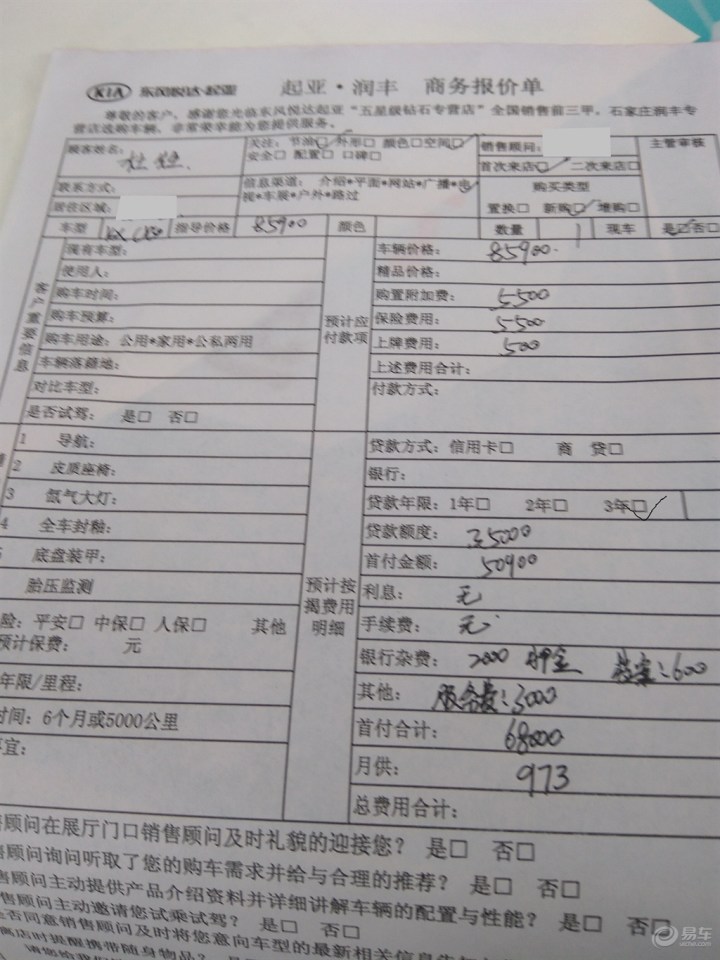 KIA 东风悦达·起亚 起亚·润丰 商务报价单
尊敬的客户，感谢您光临东风悦达起亚“五星级钻石专营店”全国销售前三甲，石家庄润丰专
营店选购车辆，非常荣幸能为您提供服务。
顾客姓名：
关注：节油□ 外形□ 颜色□空间□
安全□ 配置□ 口碑□
销售顾问：
主管审核
首次来店□ 二次来店□
联系方式：
信息渠道： 介绍*平面*网站*广播*电
视*车展*户外*路过
购买类型
居住区域：
置换□ 新购□ 增购□
车型 指导价格 85900 颜色 数量 1 现车 是□否□
客户重要信息
现有车型：
使用人：
购车时间：
购车预算：
购车用途：公用*家用*公私两用
车辆落籍地：
对比车型：
是否试驾： 是□ 否□
预计应付款项
车辆价格： 85900.
精品价格：
购置附加费： 5500
保险费用： 5500
上牌费用： 500
上述费用合计：
付款方式：
1 导航：
2 皮质座椅：
3 氙气大灯：
4 全车封釉：
底盘装甲：
胎压监测
险：平安□ 中保□ 人保□ 其他
预计保费： 元
年限/里程：
时间：6个月或5000公里
事宜：
预计按揭费用明细
贷款方式：信用卡□ 商 贷□
银行：
贷款年限：1年□ 2年□ 3年□
贷款额度： 35000
首付金额： 50900
利息： 无
手续费： 无
银行杂费： 2000 押金 档案：600
其他： 服务费：3000
首付合计： 68000
月供： 973
总费用合计：
售顾问在展厅门口销售顾问及时礼貌的迎接您？ 是□ 否□
售顾问询问听取了您的购车需求并给与合理的推荐？ 是□ 否□
售顾问主动提供产品介绍资料并详细讲解车辆的配置与性能？ 是□ 否□
售顾问主动邀请您试乘试驾？ 是□ 否□
是否同意销售顾问及时将您意向车型的最新相关信息告
离店时提醒携带随身物品？
易车